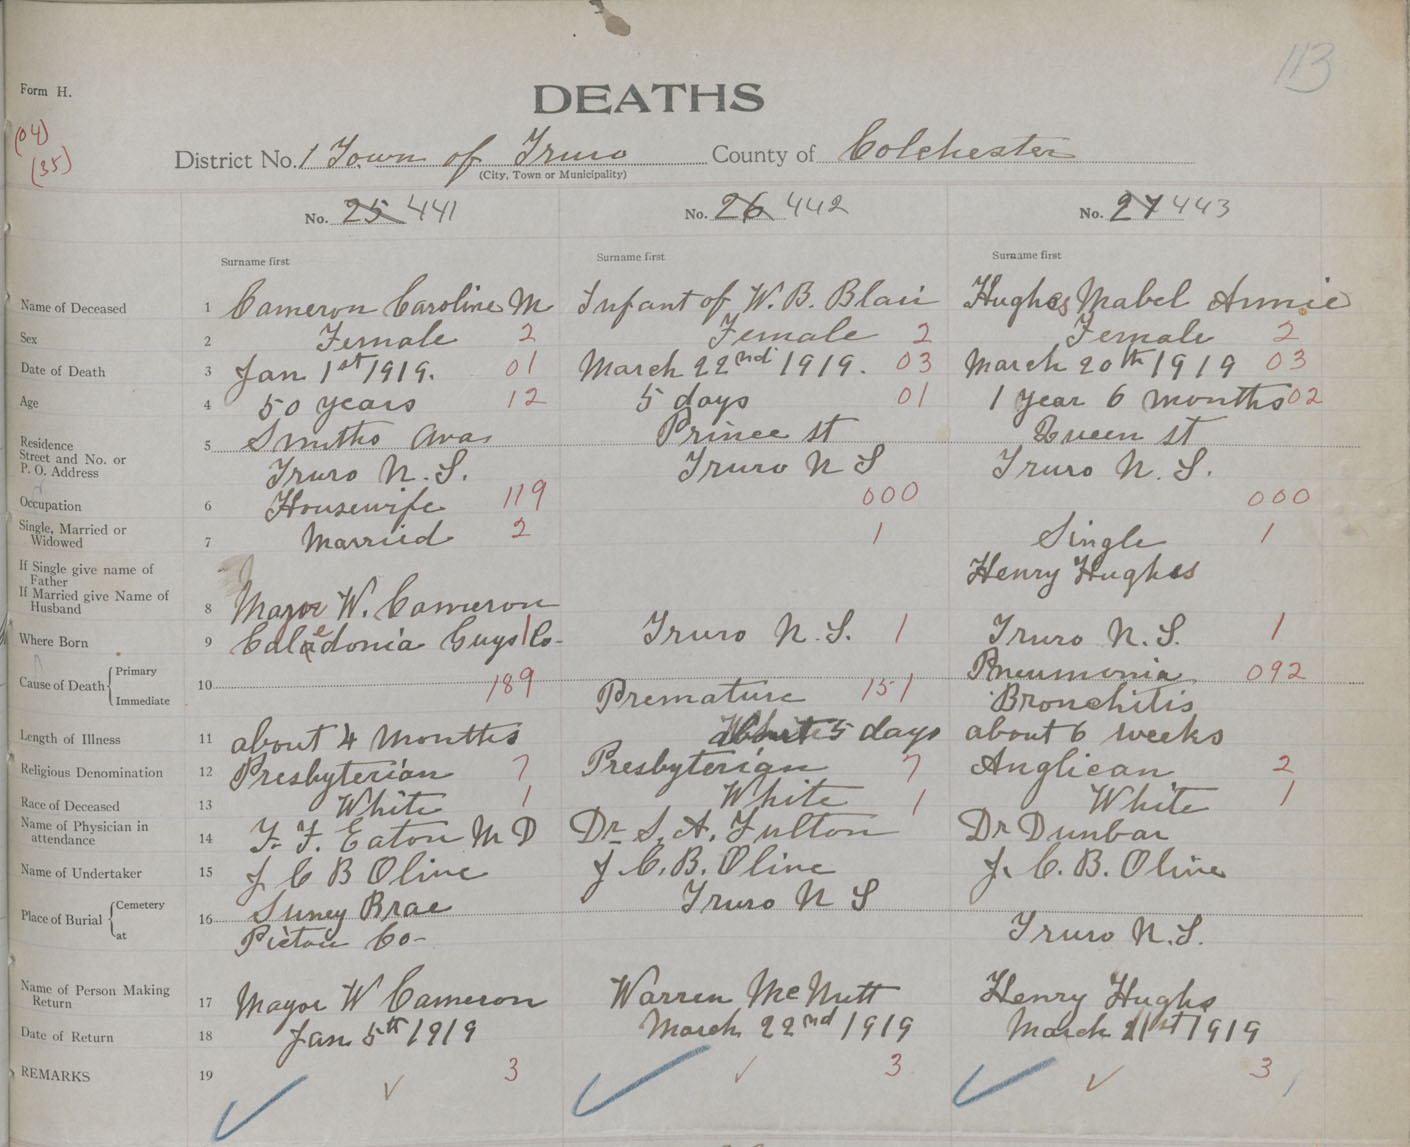 113
Form H.
DEATHS
(04)
(35)
District No. 1 Town of Truro County of Colchester
(City, Town or Municipality)
No. 25 441 No. 26 442 No. 27 443
Surname first Surname first Surname first
Name of Deceased 1 Cameron Caroline M Infant of W. B. Blair Hughes Mabel Annie
Sex 2 Female 2 Female 2 Female 2
Date of Death 3 Jan 1st 1919. 01 March 22nd 1919. 03 March 20th 1919 03
Age 4 50 years 12 5 days 01 1 year 6 months 02
Residence
Street and No. or
P. O. Address
5 Smiths Ave Prince St Queen St
Truro N. S. Truro N S Truro N. S.
Occupation 6 Housewife 119 000 000
Single, Married or
Widowed
7 Married 2 1 Single 1
If Single give name of
Father
Henry Hughes
If Married give Name of
Husband
8 Mayor W. Cameron
Where Born 9 Caledonia Guys Co- 1 Truro N. S. 1 Truro N. S. 1
Cause of Death Primary
Immediate
10 189 Premature 151 Pneumonia 092
Bronchitis
Length of Illness 11 about 4 months about 5 days about 6 weeks
Religious Denomination 12 Presbyterian 7 Presbyterian 7 Anglican 2
Race of Deceased 13 White 1 White 1 White 1
Name of Physician in
attendance
14 F. F. Eaton M D Dr S. A. Fulton Dr Dunbar
Name of Undertaker 15 J C B Olive J. C. B. Olive J. C. B. Olive
Place of Burial Cemetery
at
16 Suney Brae Truro N S
Pictou Co- Truro N. S.
Name of Person Making
Return
17 Mayor W Cameron Warren McNutt Henry Hughs
Date of Return 18 Jan 5th 1919 March 22nd 1919 March 21st 1919
REMARKS 19 3 3 3